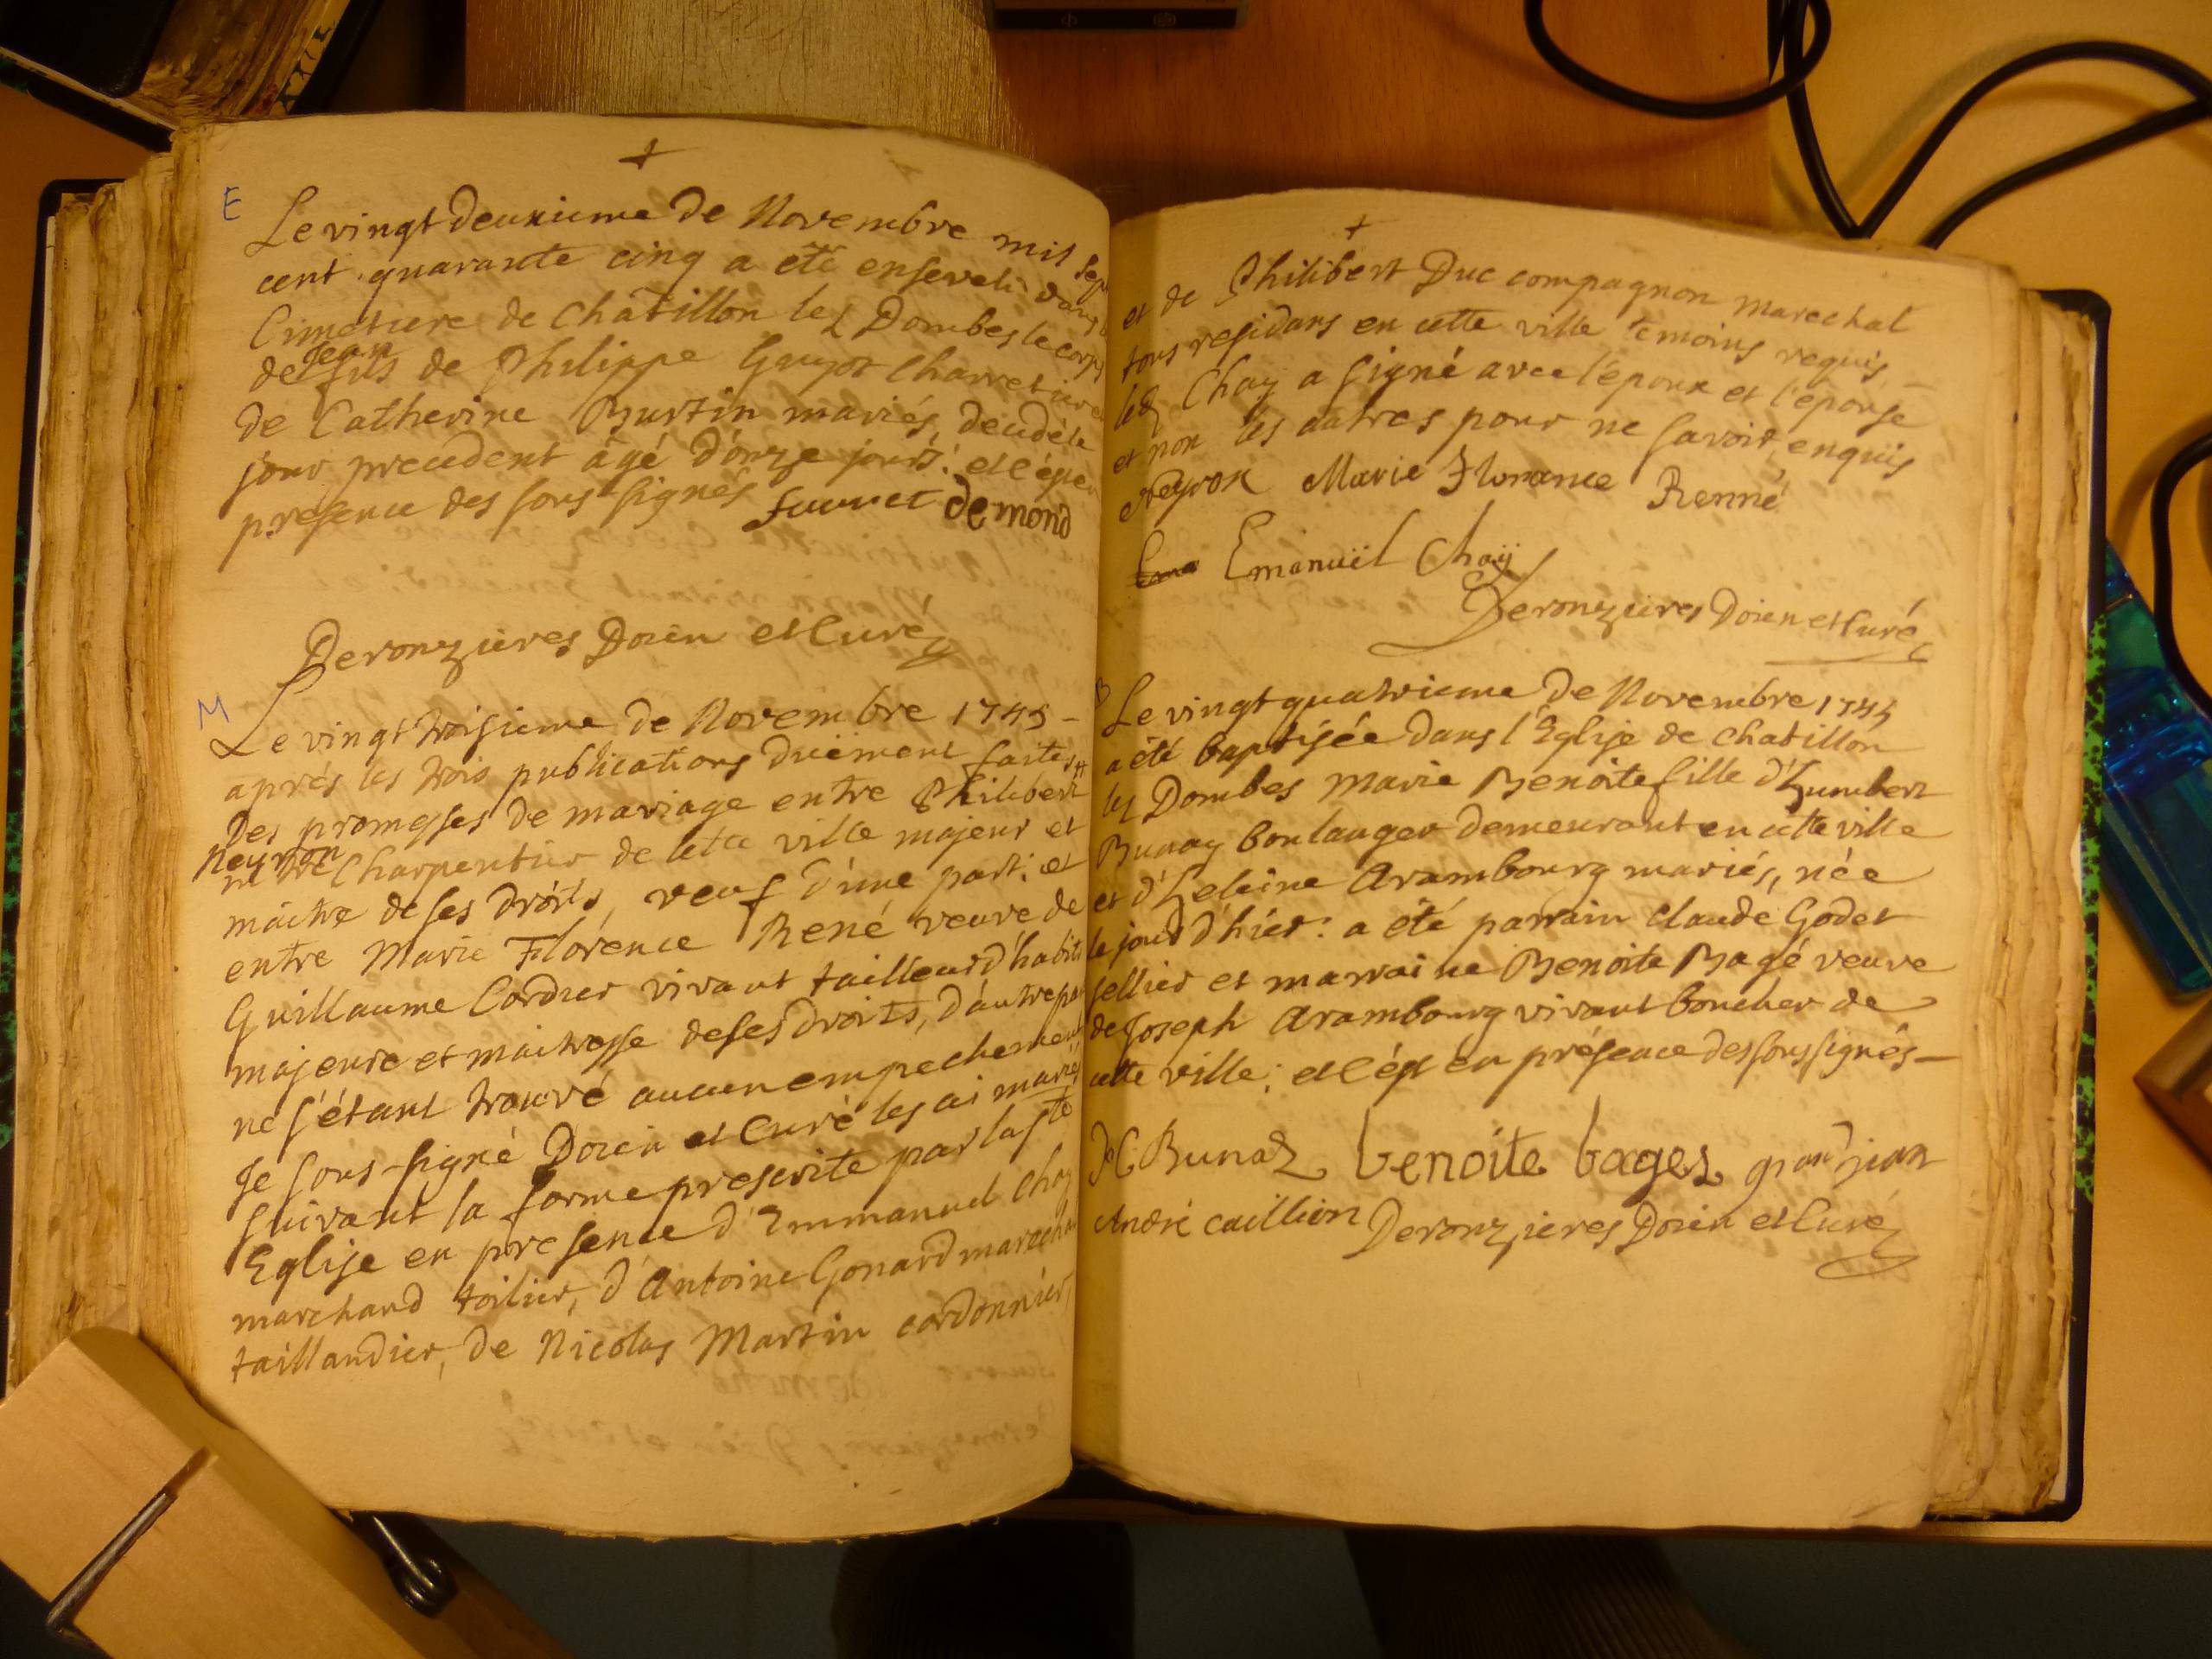 E
Le vingtdeuxieme de Novembre mil sep
cent quarante cinq a eté enseveli dans
Cimetiere de Châtillon les Dombes le corps
Jean
de fils de Philippe Guyot Charretier
de Catherine Burtin mariés, decedé le
jour precedent âgé d'onze jours: et c'é en
presence des sous-signés demond
Deronzieres Doien et Curé
M
Le vingt troisieme de Novembre 1745 -
aprés les trois publications duëment faites
des promesses de mariage entre Philibert
Neyron
me Charpentier de cette ville majeur et
maitre de ses droits, veuf d'une part: et
entre Marie Florence René veuve de
Guillaume Cordier vivant tailleur d'habits
majeure et maitresse de ses droits, d'autre par
ne s'étant trouvé aucun empechement
Je sous-signé Doien et Curé les ai mariés
suivant la forme prescrite par la Ste
Eglise en presence d'Emmanuel Chay
marchand toilier, d'Antoine Gonard marechal
taillandier, de Nicolas Martin cordonnier,
et de Philibert Duc compagnon marechal
tous residans en cette ville temoins requis
led Chay a signé avec l'epoux et l'epouse
et non les autres pour ne savoir, enquis
Neyron Marie Florance Renné
Emanuël Chaÿ
Deronzieres Doien et Curé
B
Le vingtquatrieme de Novembre 1745
a été baptisée dans l'Eglise de Chatillon
les Dombes Marie Benoite fille d'Humbert
Bunay boulanger demeurant en cette ville
et d'Heleine Arambourg mariés, née
le jour d'hier: a été parrain Claude Godet
sellier et marraine Benoite Bagé veuve
de Joseph Arambourg vivant boucher de
cette ville: et c'ést en présence des soussignés -
Bunaz benoite bages grand jean
André caillion Deronzieres Doien et Curé